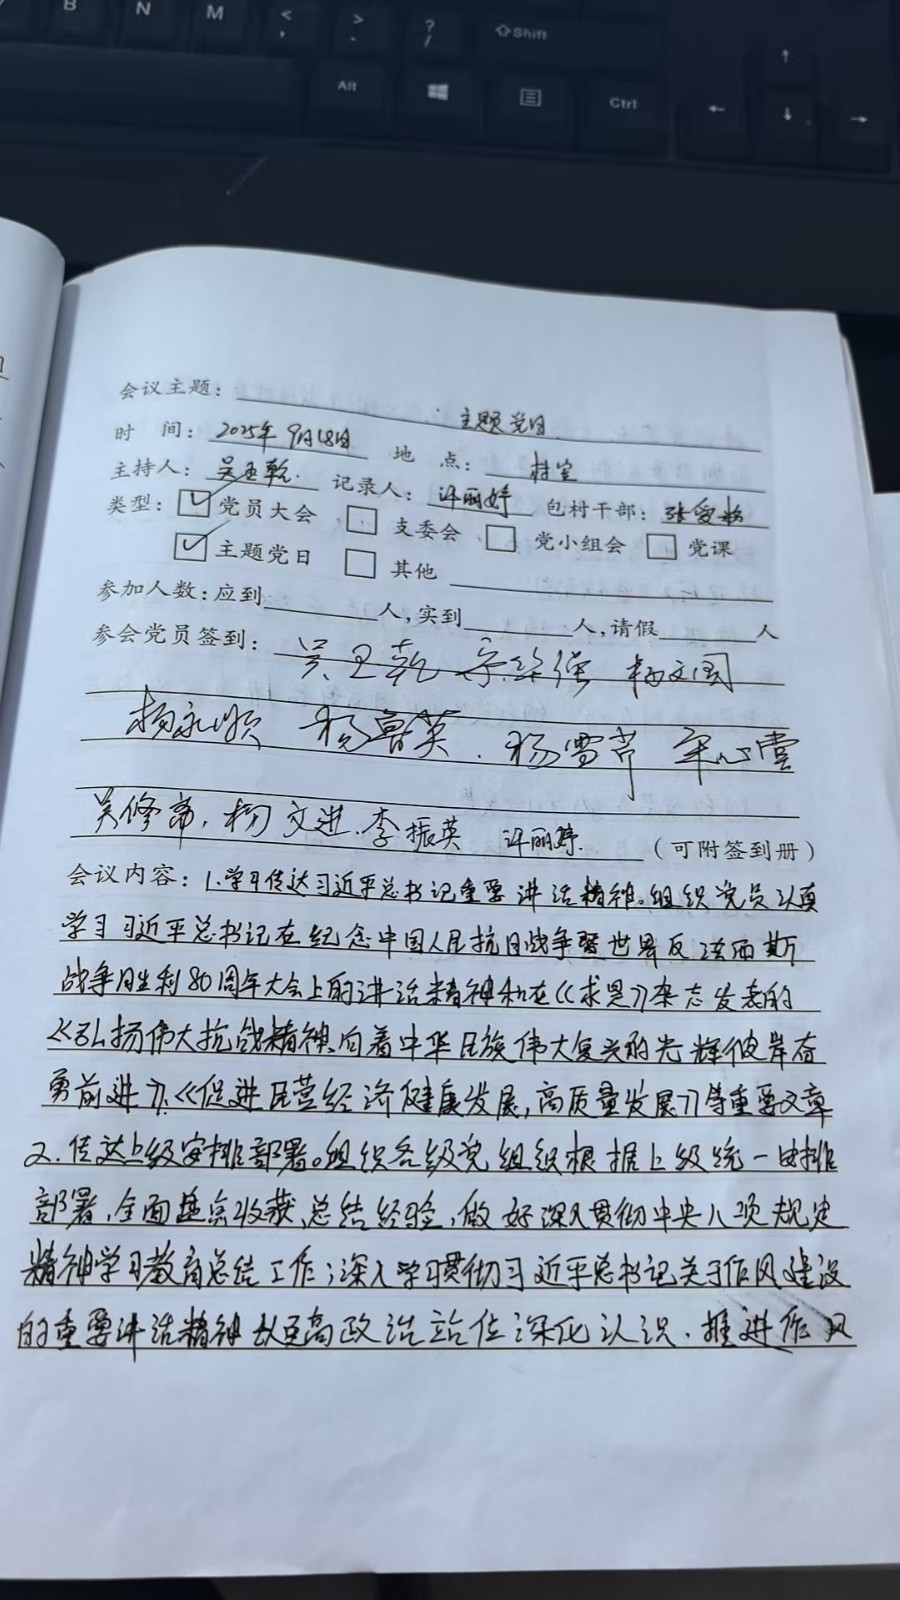 B N M < , > . ? / Shift
Alt Ctrl
会议主题： 主题党日
时 间：2025年9月18日 地 点： 村室
主持人：吴玉乾 记录人：许丽婷 包村干部：张爱
类型：☑党员大会 □支委会 □党小组会 □党课
☑主题党日 □其他
参加人数：应到 人，实到 人，请假 人
参会党员签到：吴玉乾 宗华强 杨文阁
杨永顺 杨鲁英 杨雪芹 牟心堂
吴修 杨文进 李振英 许丽婷 （可附签到册）
会议内容：1.学习传达习近平总书记重要讲话精神。组织党员认真
学习习近平总书记在纪念中国人民抗日战争暨世界反法西斯
战争胜利80周年大会上的讲话精神和在《求是》杂志发表的
《弘扬伟大抗战精神，向着中华民族伟大复兴的光辉彼岸奋
勇前进》、《促进民营经济健康发展，高质量发展》等重要文章
2.传达上级安排部署。组织各级党组织根据上级统一安排
部署，全面盘点收获，总结经验，做好深入贯彻中央八项规定
精神学习教育总结工作；深入学习贯彻习近平总书记关于作风建设
的重要讲话精神 以更高政治站位深化认识、推进作风